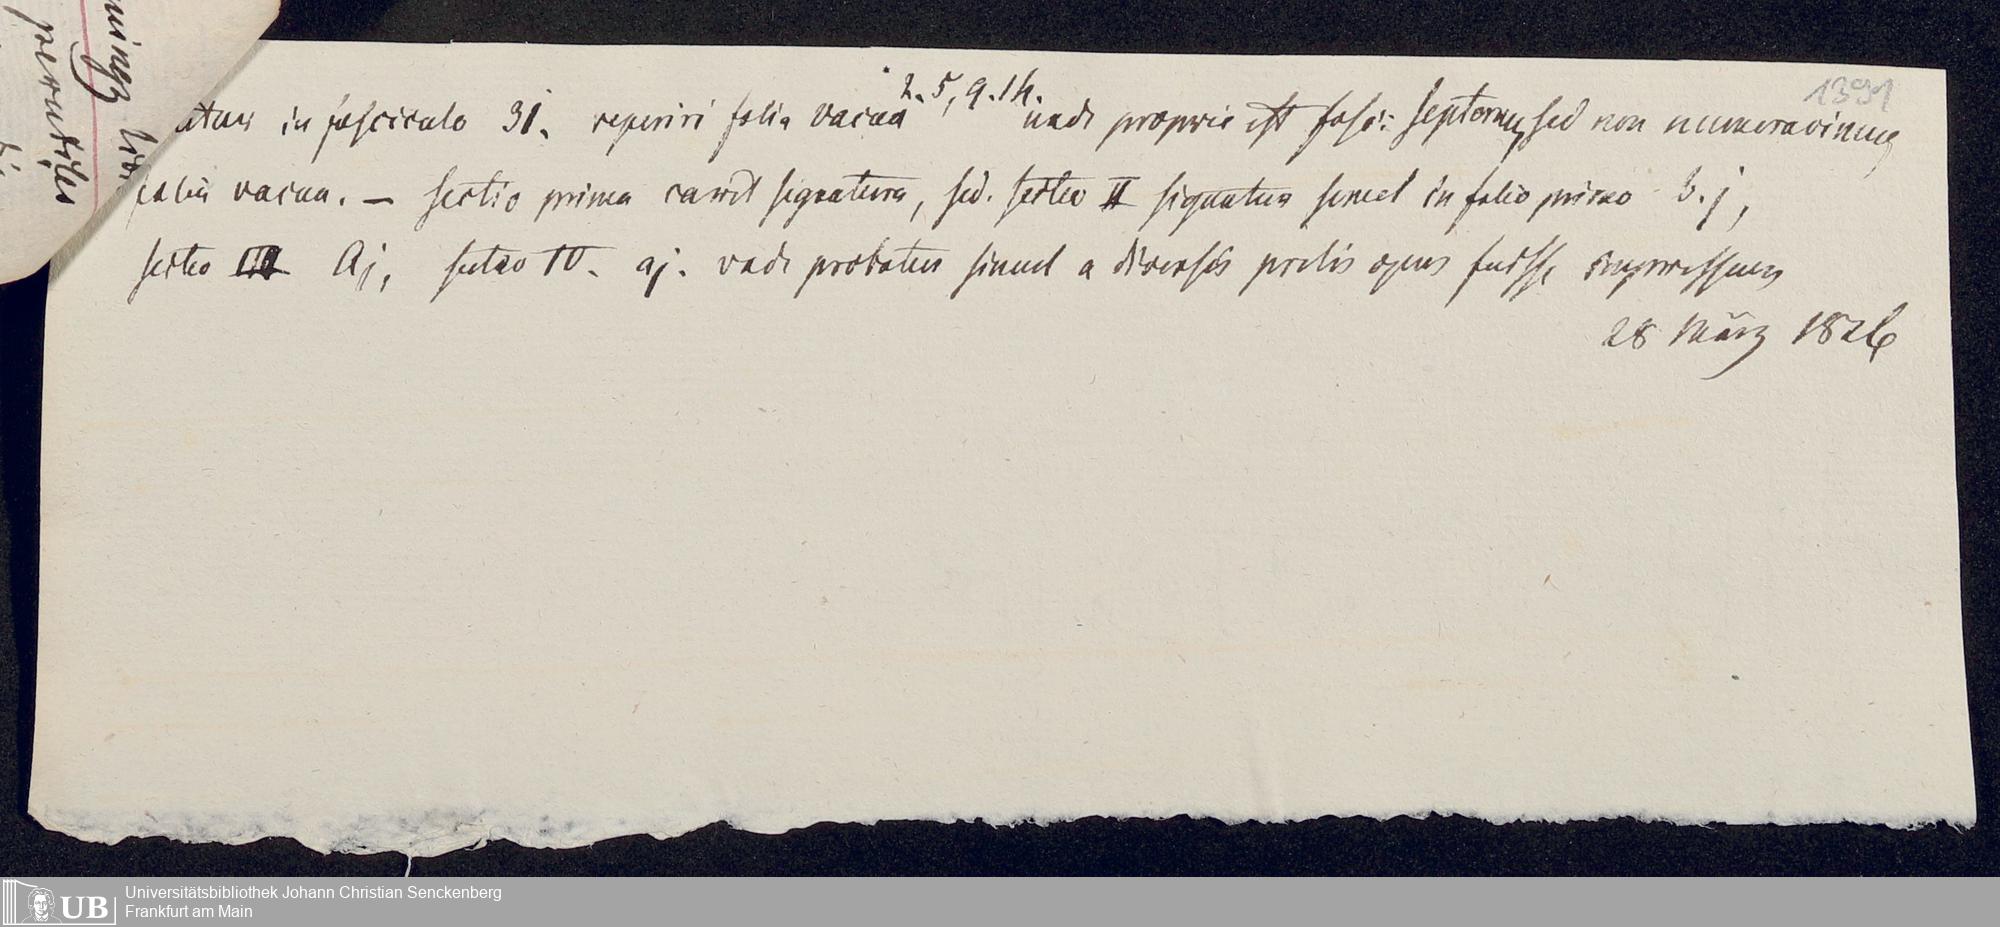 1391
in fasciculo 31. reperiri folia vacua 2. 5, 9. 14. unde proprie est fasc: septernus, sed non numeravimus
folia vacua. — sectio prima caret signatura, sed. sectio II signatur simul in folio primo b. j,
sectio III Aj, sectio IV. aj. unde probatur simul a diversis prelis opus fuisse impressum
28 März 1826
perutiles
UB Universitätsbibliothek Johann Christian Senckenberg
Frankfurt am Main